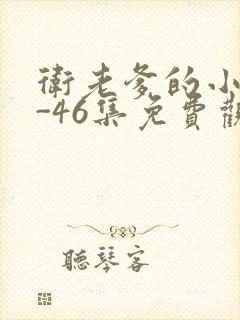 衛老爹的小
-46集免費觀
聽琴客